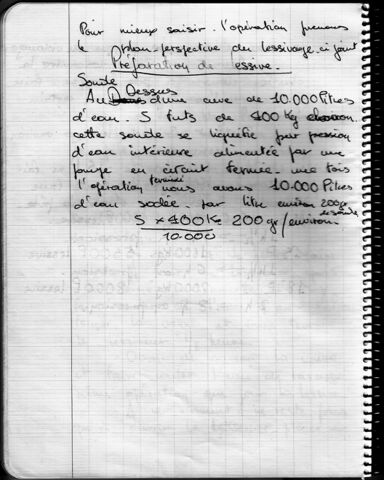 Pour mieux saisir l'opération prenons
le plan perspective du lessivage ci joint
Préparation de essive.
Soude
Au Dessus d'une cuve de 10.000 litres
d'eau. 5 futs de 400 Kg environ
cette soude se liquéfie par pression
d'eau intérieure alimentée par une
pompe en circuit fermée. une fois
l'opération terminé nous avons 10.000 litres
d'eau sodée. par litre environ 200gr
de soude
5 x 400 Kg 200 gr/environ.
10.000